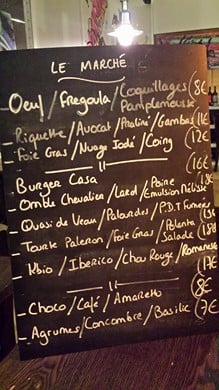 LE MARCHÉ
- Oeuf / Fregoula / Coquillages Pamplemousse (8€
- Riquette / Avocat / Praliné / Gambas (11€
- Foie Gras / Nuage Iodé / Coing (12€
- Burger Casa (16€
- Omble Chevalier / Lard / Poire Emulsion Mélisse (18€
- Quasi de Veau / Palourdes / P.D.T Fumées
- Tourte Paleron / Foie Gras / Polenta Salade (18€
- Kbio / Iberico / Chou Rouge / Romanesco (17€
- Choco / Café / Amaretto (8€
- Agrumes / Concombre / Basilic (7€